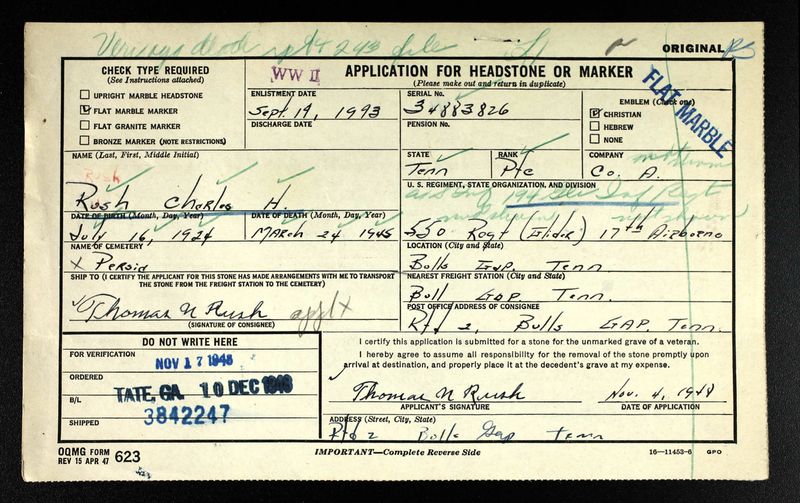 ORIGINAL
CHECK TYPE REQUIRED
(See Instructions attached)
UPRIGHT MARBLE HEADSTONE
FLAT MARBLE MARKER
FLAT GRANITE MARKER
BRONZE MARKER (NOTE RESTRICTIONS)
WW II
APPLICATION FOR HEADSTONE OR MARKER
(Please make out and return in duplicate)
ENLISTMENT DATE
Sept. 19, 1993
DISCHARGE DATE
SERIAL No.
34883826
PENSION No.
EMBLEM (Check one)
CHRISTIAN
HEBREW
NONE
FLAT MARBLE
NAME (Last, First, Middle Initial)
Rush
Rush Charles H.
STATE
Tenn
RANK
Pfc
COMPANY
Co. A.
U. S. REGIMENT, STATE ORGANIZATION, AND DIVISION
550 Regt (Glider) 17th Airborne
DATE OF BIRTH (Month, Day, Year)
July 16, 1924
DATE OF DEATH (Month, Day, Year)
March 24 1945
NAME OF CEMETERY
x Persia
LOCATION (City and State)
Bulls Gap, Tenn.
SHIP TO (I CERTIFY THE APPLICANT FOR THIS STONE HAS MADE ARRANGEMENTS WITH ME TO TRANSPORT
THE STONE FROM THE FREIGHT STATION TO THE CEMETERY)
Thomas N Rush
(SIGNATURE OF CONSIGNEE)
NEAREST FREIGHT STATION (City and State)
Bull Gap Tenn.
POST OFFICE ADDRESS OF CONSIGNEE
Rt 2, Bulls GAP, Tenn.
DO NOT WRITE HERE
FOR VERIFICATION
NOV 17 1948
ORDERED
B/L
TATE, GA. 10 DEC 1948
3842247
SHIPPED
I certify this application is submitted for a stone for the unmarked grave of a veteran.
I hereby agree to assume all responsibility for the removal of the stone promptly upon
arrival at destination, and properly place it at the decedent's grave at my expense.
Thomas N Rush
APPLICANT'S SIGNATURE
Nov. 4, 1948
DATE OF APPLICATION
ADDRESS (Street, City, State)
Rt 2 Bulls Gap Tenn
OQMG FORM
REV 15 APR 47 623
IMPORTANT—Complete Reverse Side
16—11453-6 GPO